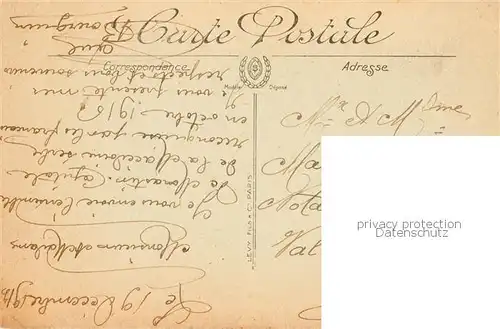 Carte Postale
Correspondance
Adresse
Modèle Déposé
LEVY FILS & Cie PARIS
Mr & Mme
Ma
Nota
Val
privacy protection
copyright area
Le 19 Décembre 191
Monsieur et Madame
Je vous envoie l'ensemble
de Monastir, capitale
de la Macédoine serbe
reconquise par les français
en octobre 1916
Je vous présente mes
respects et bons souvenirs